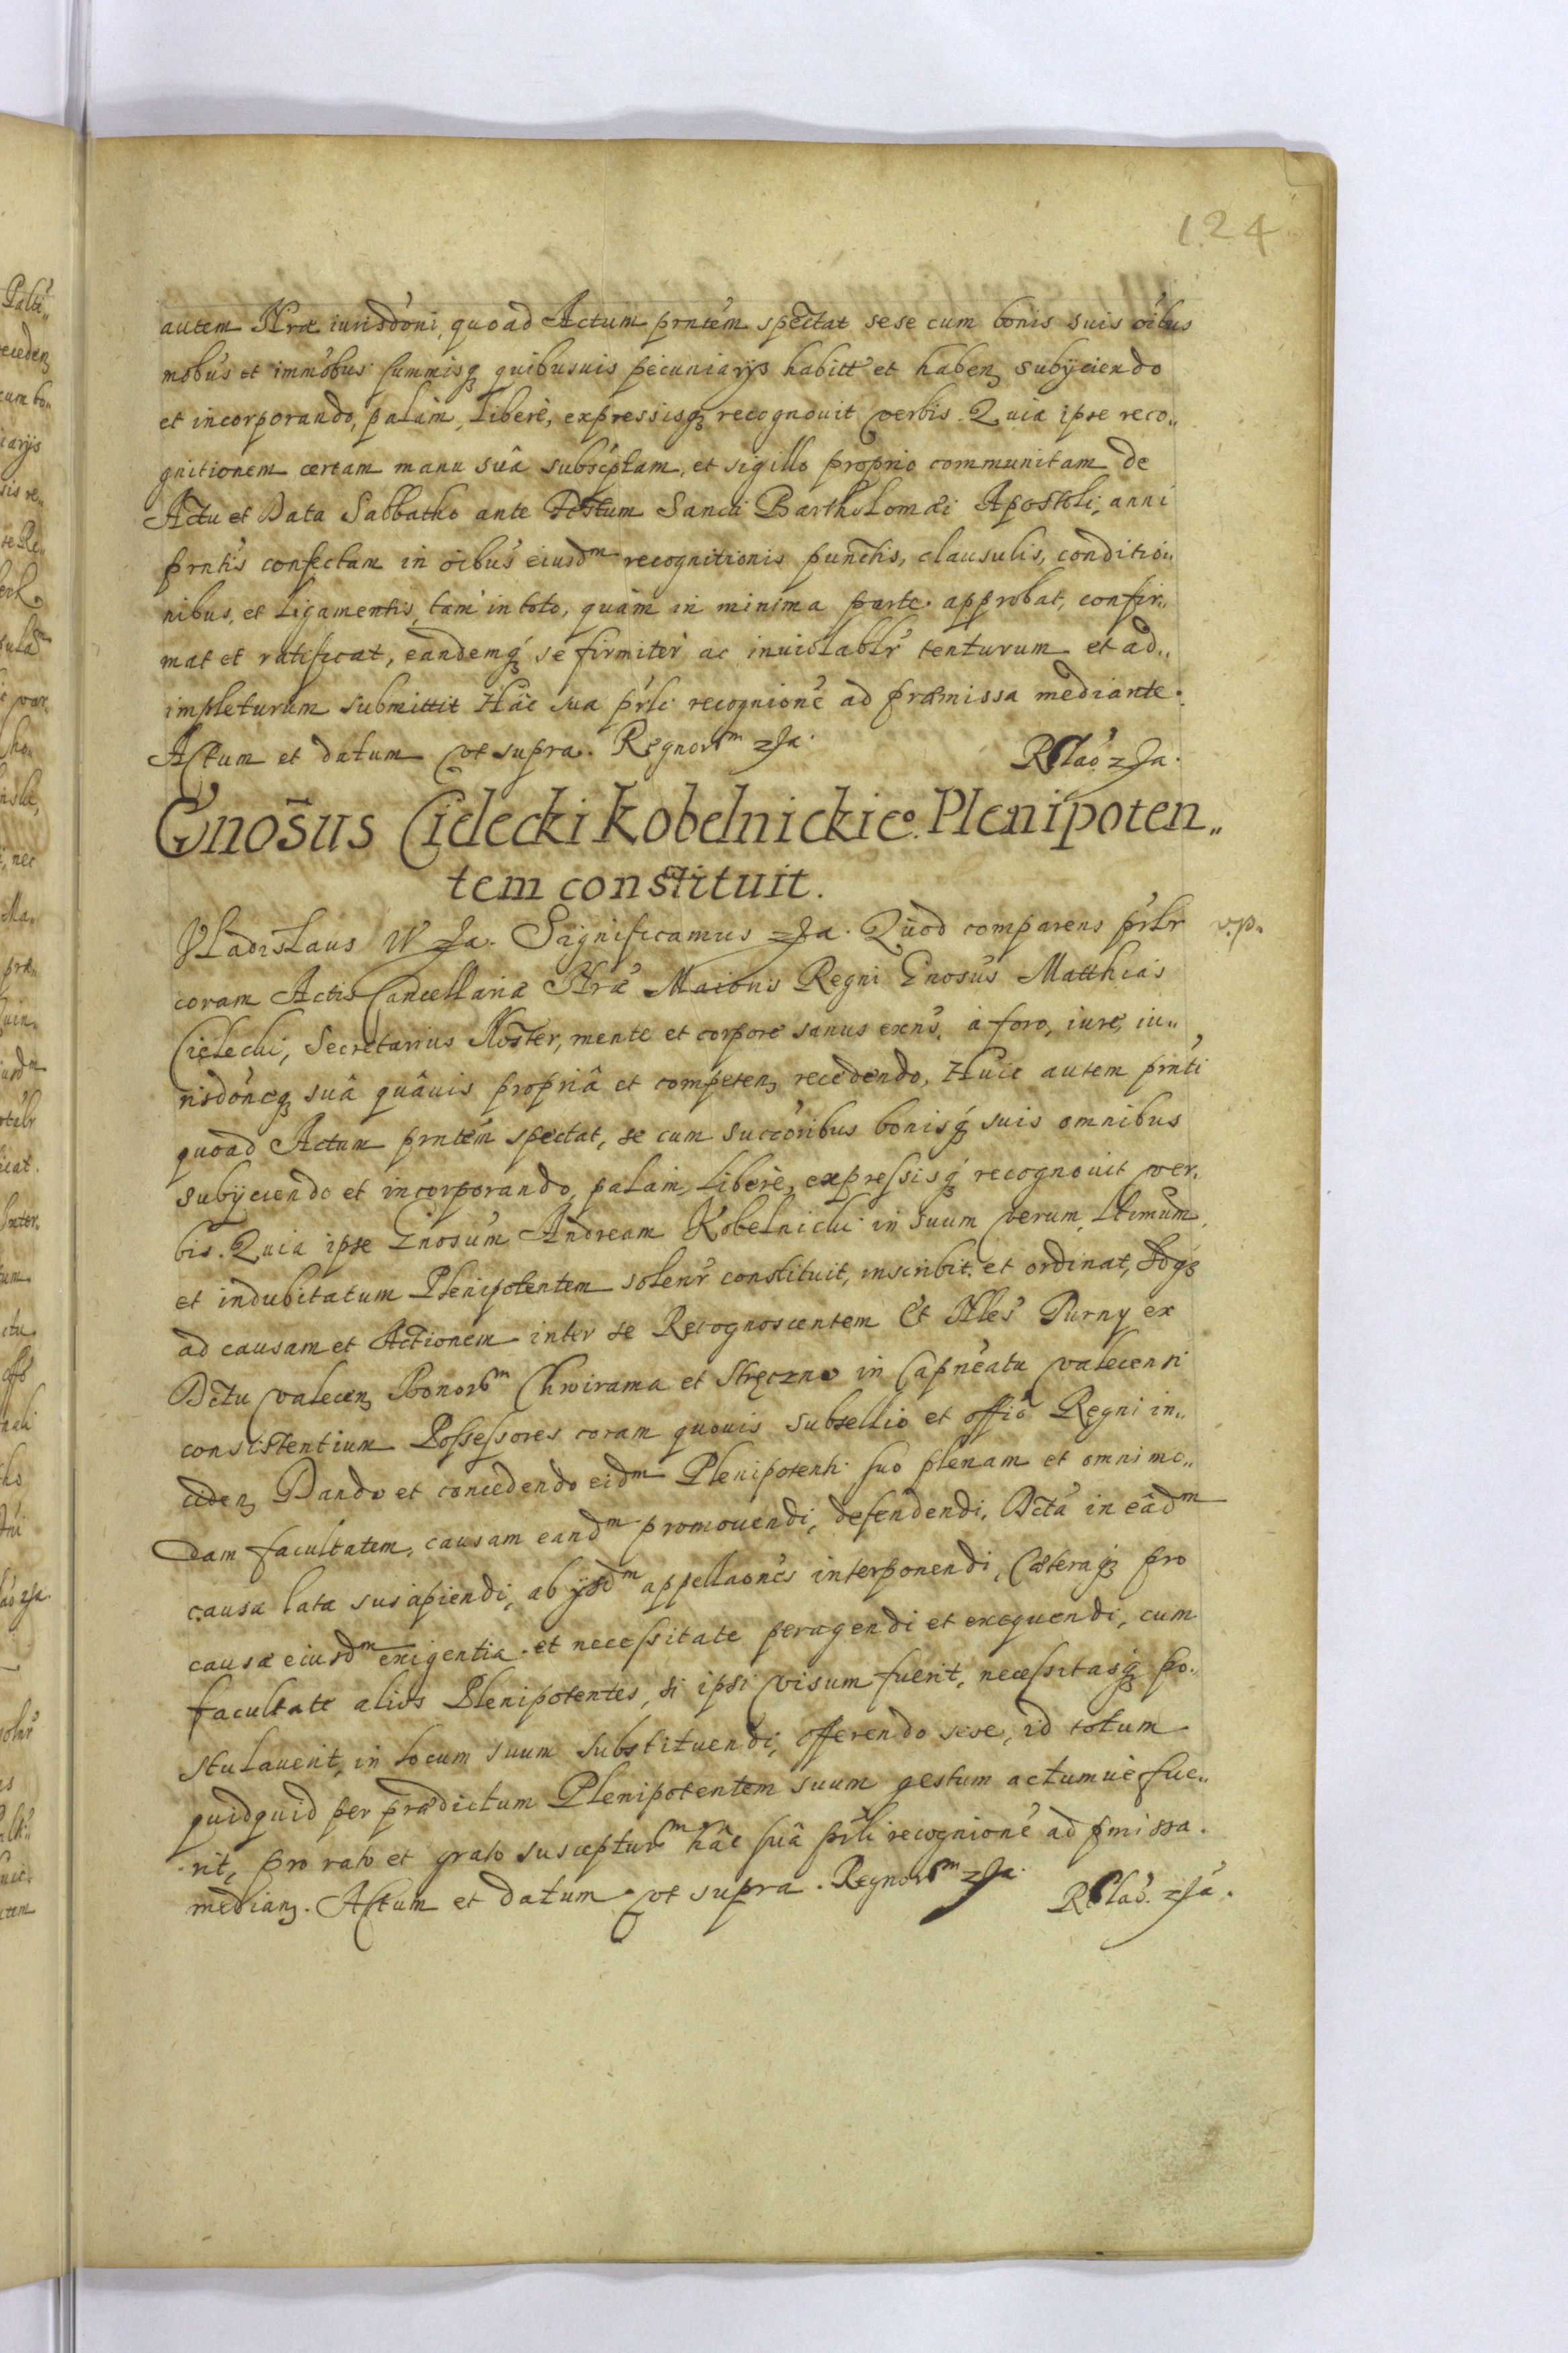 124
autem Nrae iurisdoni, quoad Actum prntem spectat sese cum bonis suis oibus
mobus et immobus summisq quibusuis pecuniarijs habitt et haben subijciendo
et incorporando, palam, libere, expressisq recognouit verbis. Quia ipse reco„
gnitionem certam manu suâ subscptam, et sigillo proprio communitam de
Actu et Data Sabbatho ante Festum Sancti Bartholomaei Apostoli, anni
prntis confectam in oibus eiusdm recognitionis punctis, clausulis, conditio„
nibus, et Ligamentis, tam in toto, quàm in minima parte approbat, confir„
mat et ratificat, eandemq se firmiter ac inuiolablr tenturum et ad„
impleturum submittit Hac sua prli recognione ad praemissa mediante.
Actum et datum vt supra. Regnorm zJa.
Rlao zJa.
Gnosus Cielecki Kobelnickieo Plenipoten„
tem constituit.
Vladislaus IV zJa. Significamus zJa. Quod comparens prlr
v.p.
coram Actis Cancellariae Nrae Maioris Regni Gnosus Matthias
Cielecki, Secretarius Noster, mente et corpore sanus exns, à foro, iure, iu„
risdoneq suâ quâuis propriâ et competen recedendo, Huic autem prnti
quoad Actum prntem spectat, se cum succoribus bonisq suis omnibus
subijciendo et incorporando, palam, libere, expressisq recognouit ver„
bis. Quia ipse Gnosum Andream Kobelnicki in suum verum, ltimum,
et indubitatum Plenipotentem solenr constituit, inscribit et ordinat, Idq
ad causam et Actionem inter se Recognoscentem Et Nles Purny ex
Dctu valecen Bonorm Chwirama et Stręczno in Capneatu valecensi
consistentium Possessores coram quouis subsellio et offio Regni in„
ciden Dando et concedendo eidm Plenipotenti suo plenam et omnimo„
dam facultatem, causam eandm promouendi, defendendi, Dcta in eâdm
causa lata suscipiendi, ab ijsdm appellaones interponendi, Caeteraq pro
causae eiusdm exigentia et necessitate peragendi et exequendi, cum
facultate alios Plenipotentes, si ipsi visum fuerit, necessitasq po„
stulauerit, in locum suum substituendi, offerendo sese, id totum
quidquid per praedictum Plenipotentem suum gestum actumue fue„
rit, pro rato et grato suscepturm hâc suâ prli recognione ad pmissa
median. Actum et datum vt supra. Regnorm zJa.
Rlao. zJa.